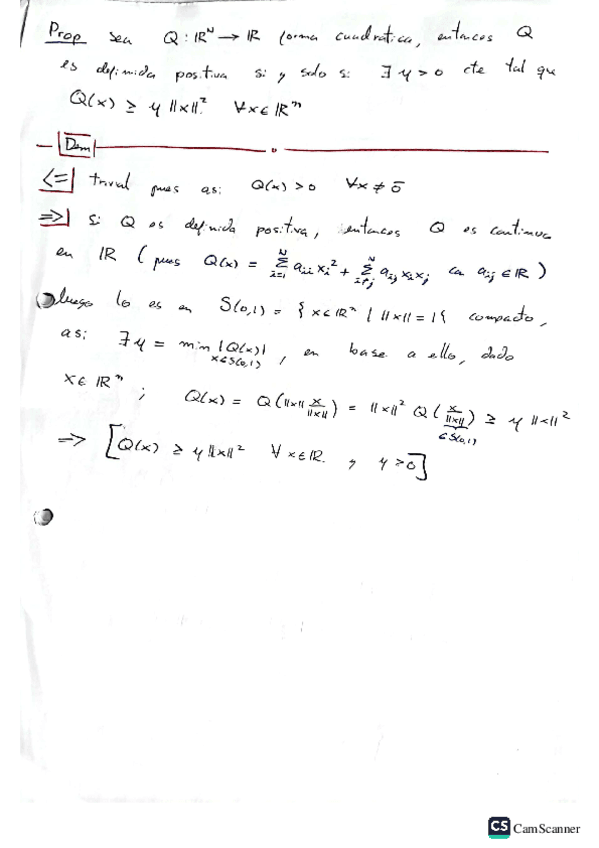 Prop Sea Q : ℝᴺ → ℝ forma cuadrática, entonces Q
es definida positiva si y solo si ∃ y > 0 cte tal que
Q(x) ≥ y ||x||² ∀x ∈ ℝⁿ
Dem
<=| trivial pues así Q(x) > 0 ∀x ≠ 0̄
=>| Si Q es definida positiva, entonces Q es continua
en ℝ (pues Q(x) = Σ_{i=1}^{N} a_{ii} x_i² + Σ_{i≠j}^{N} a_{ij} x_i x_j con a_{ij} ∈ ℝ)
luego lo es en S(0,1) = { x ∈ ℝⁿ / ||x|| = 1 { compacto,
así ∃ y = min_{x∈S(0,1)} |Q(x)| , en base a ello, dado
x ∈ ℝⁿ ; Q(x) = Q(||x|| x/||x||) = ||x||² Q(x/||x||) ≥ y ||x||²
∈ S(0,1)
=> [Q(x) ≥ y ||x||² ∀x ∈ ℝ. , y > 0]
CS CamScanner